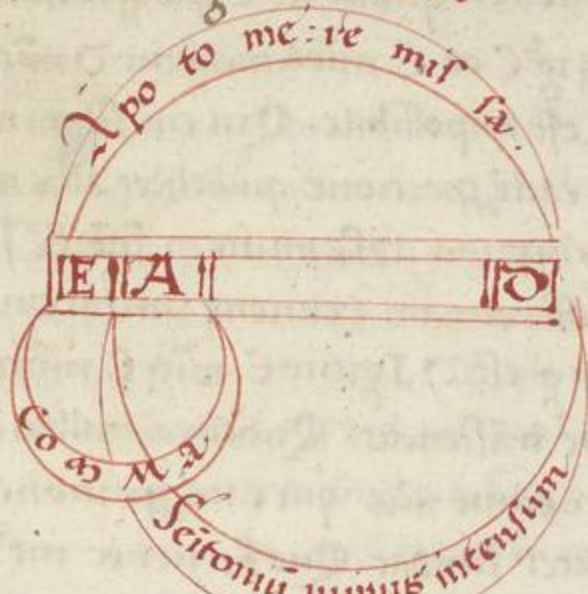 Apo to me: re mis sa.
E A D
Co m M A
Seitoniū minus intensum